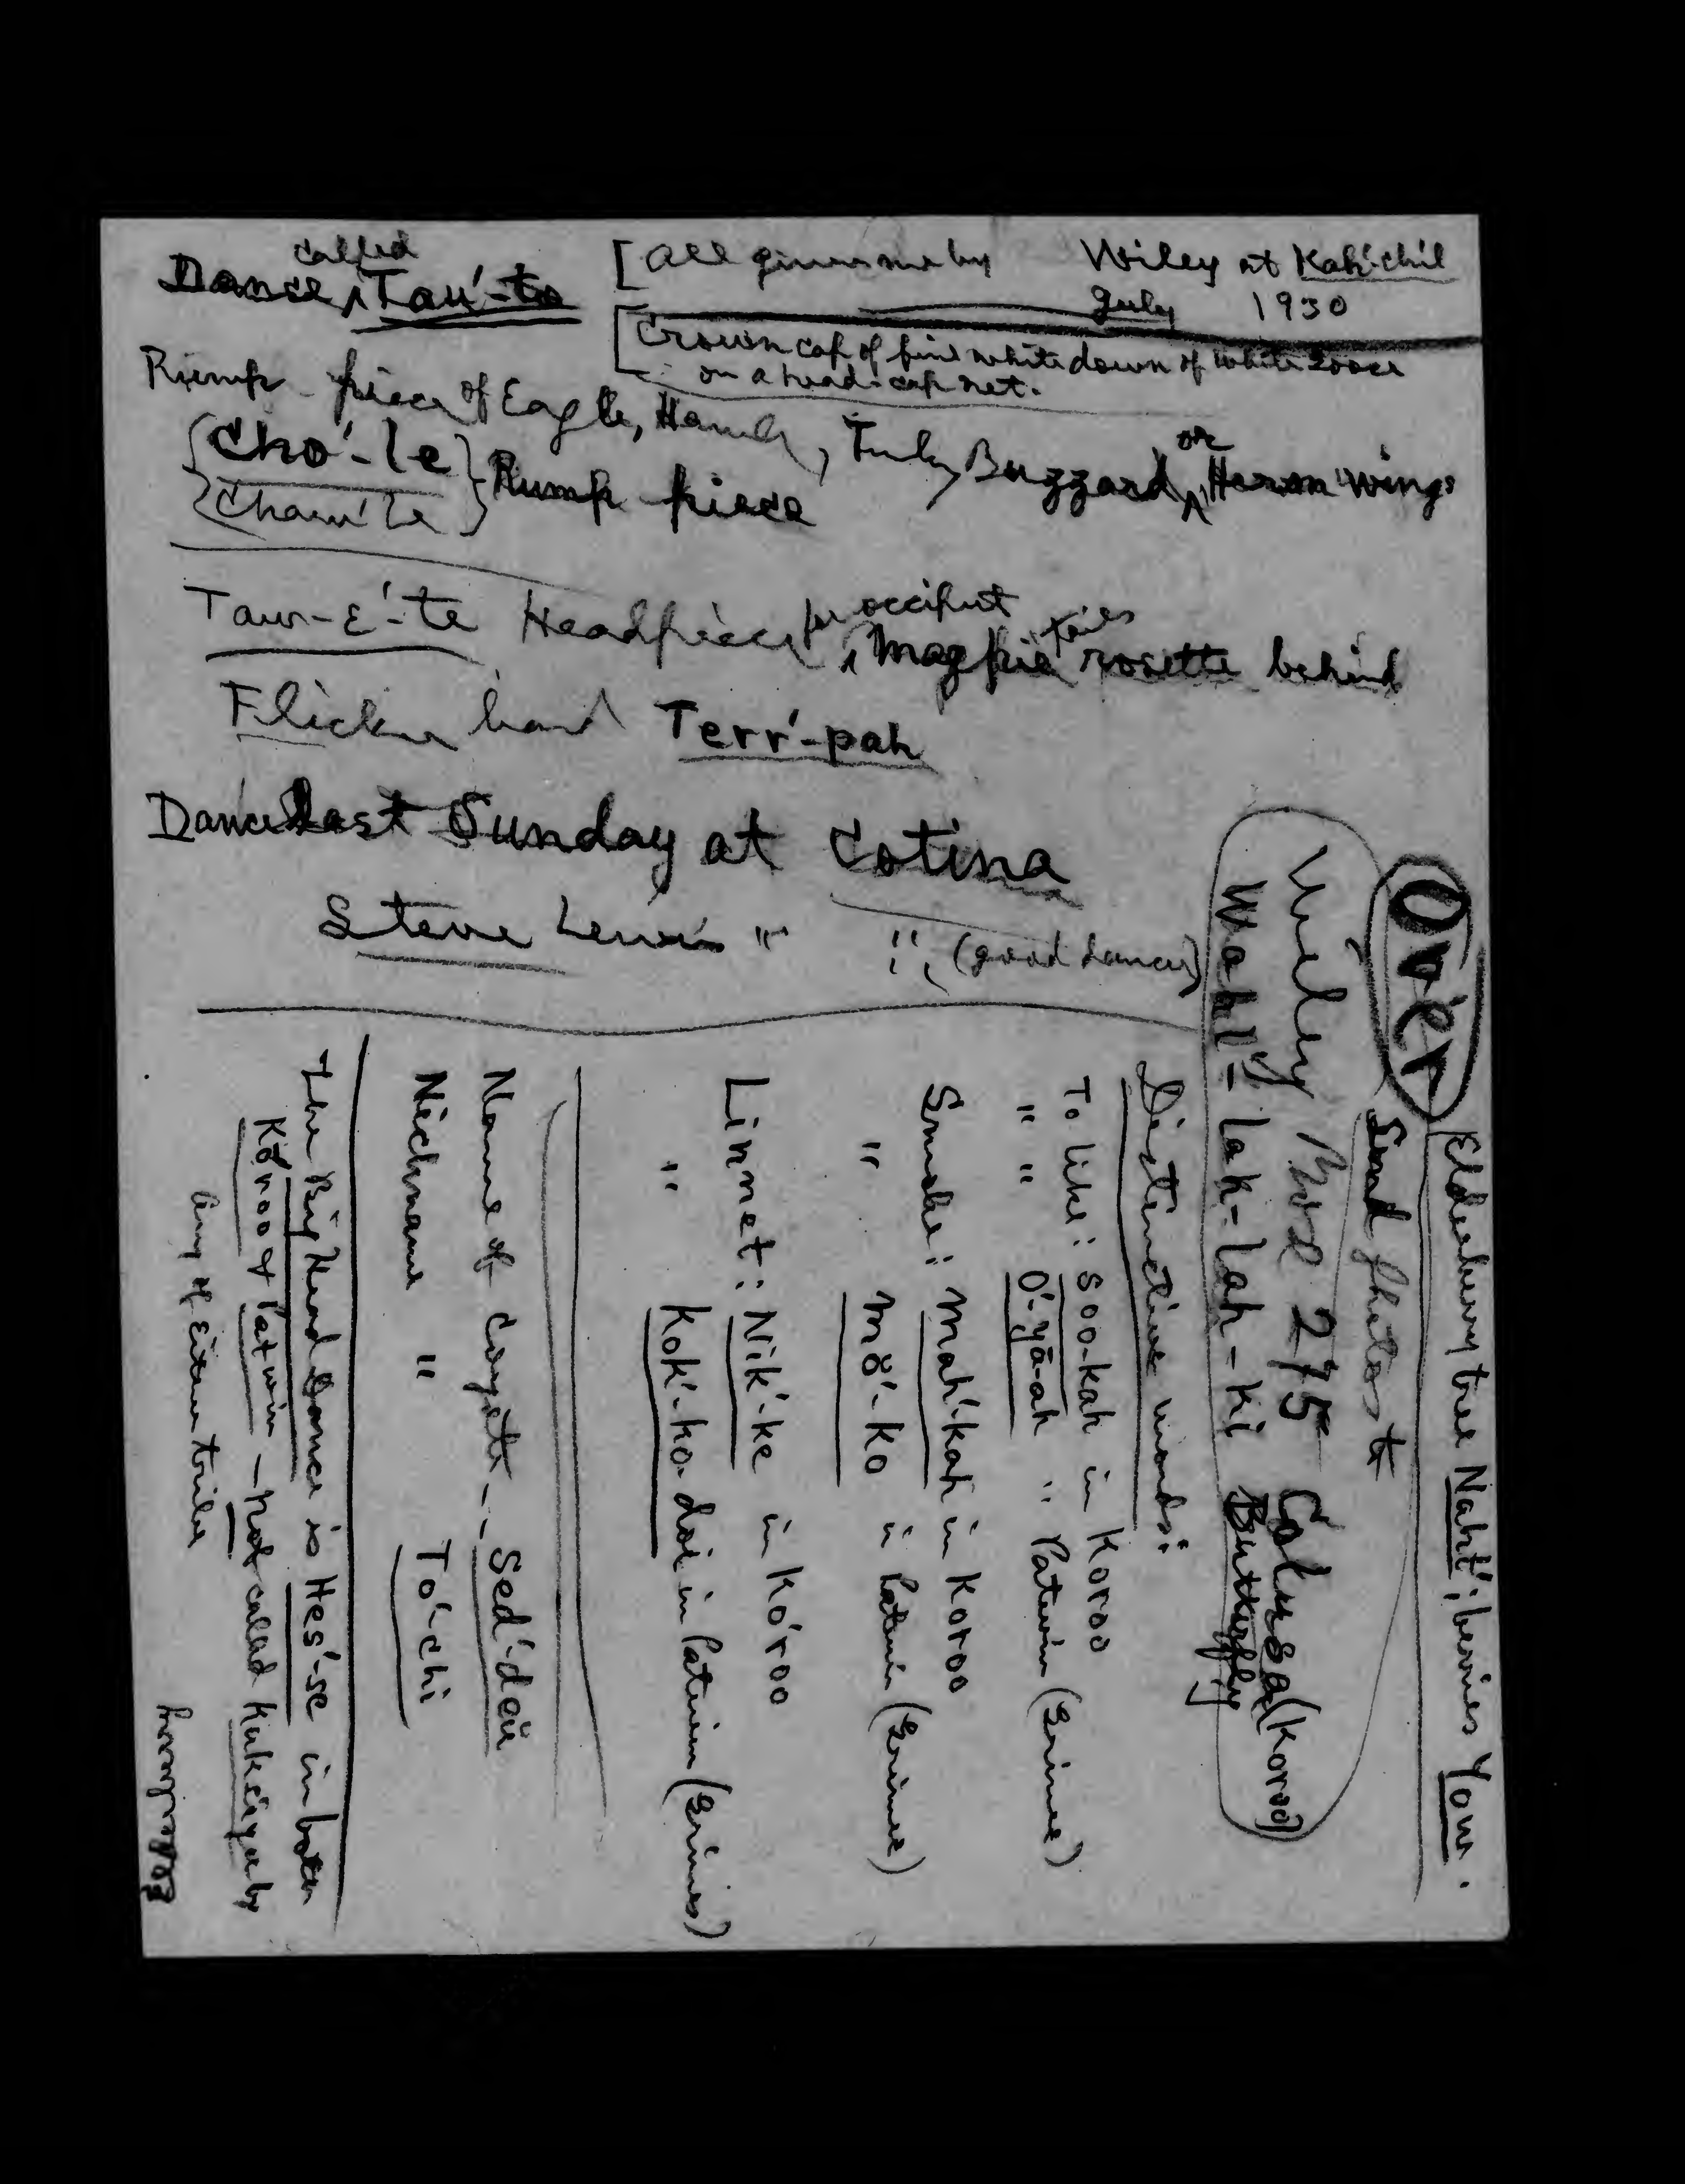 Dance called Tau'-to
[All given me by Wiley at Kah'chil
July 1930
[Crown cap of fine white down of white Goose
on a head-cap net.
Rump-piece of Eagle, Hawk, Turkey Buzzard, or Heron wings
{Cho'-le} Rump piece
{Chaw'le}
Taur-E'-te Headpiece for occiput, Magpie tails rosette behind
Flicker band Terr'-pah
Dance last Sunday at Cotina
Steve Lewis " " (good dancer)
Over
Elderberry tree Naht'; berries Yow.
Send photos to
Wiley Box 275 Colusa (Koroo)
Wahl'-lak-lah-ki Butterfly
Distinctive words:
To like: Soo-kah in Koroo
" " O'-yā-ah " Patwin (Grimes)
Smoke: Mah'-kah in Koroo
" Mo'-ko in Patwin (Grimes)
Linnet: Nik'-ke in Ko'roo
" Kok'-ko-doi in Patwin (Grimes)
Name of Coyote -- Sed'-deu
Nickname " To'-chi
The Big Head Dance is Hes'-se in both
Ko'roo & Patwin - Not called by
any of either tribe